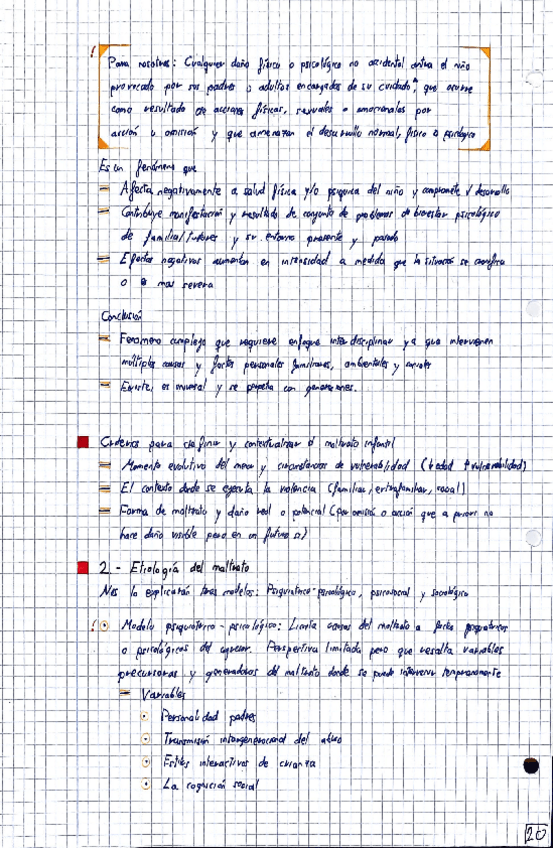 ! Para nosotros: Cualquier daño físico o psicológico no accidental contra el niño
provocado por sus padres o adultos encargados de su cuidado, que ocurre
como resultado de acciones físicas, sexuales o emocionales por
acción u omisión y que amenazan el desarrollo normal, físico o psicológico
Es un fenómeno que
Afecta negativamente a salud física y/o psíquica del niño y compromete desarrollo
Contribuye manifestación y resultado de conjunto de problemas de bienestar psicológico
de familia/tutores y su entorno presente y pasado
Efectos negativos aumentan en intensidad a medida que la situación se cronifica
o es mas severa
Conclusión
Fenómeno complejo que requiere enfoque interdisciplinar ya que intervienen
múltiples causas y personales familiares, ambientales y
Existe, es universal y se perpetúa con generaciones.
Criterios para definir y contextualizar el maltrato infantil
Momento evolutivo del menor y circunstancias de vulnerabilidad (↓ edad ↑ vulnerabilidad)
El contexto donde se ejecuta la violencia (familiar, extrafamiliar, social)
Forma de maltrato y daño real o potencial (por omisión o acción que a priori no
hace daño visible pero en un futuro si)
2.- Etiología del maltrato
Nos lo explicarán tres modelos: Psiquiátrico-psicológico, psicosocial y sociológico
! Modelo psiquiátrico-psicológico: Limita causas del maltrato a psiquiátricos
o psicológicos del agresor. Perspectiva limitada pero que resalta variables
precursoras y generadoras del maltrato donde se puede intervenir tempranamente
Variables
Personalidad padres
Transmisión intergeneracional del abuso
Estilos interactivos de crianza
La cognición social
20